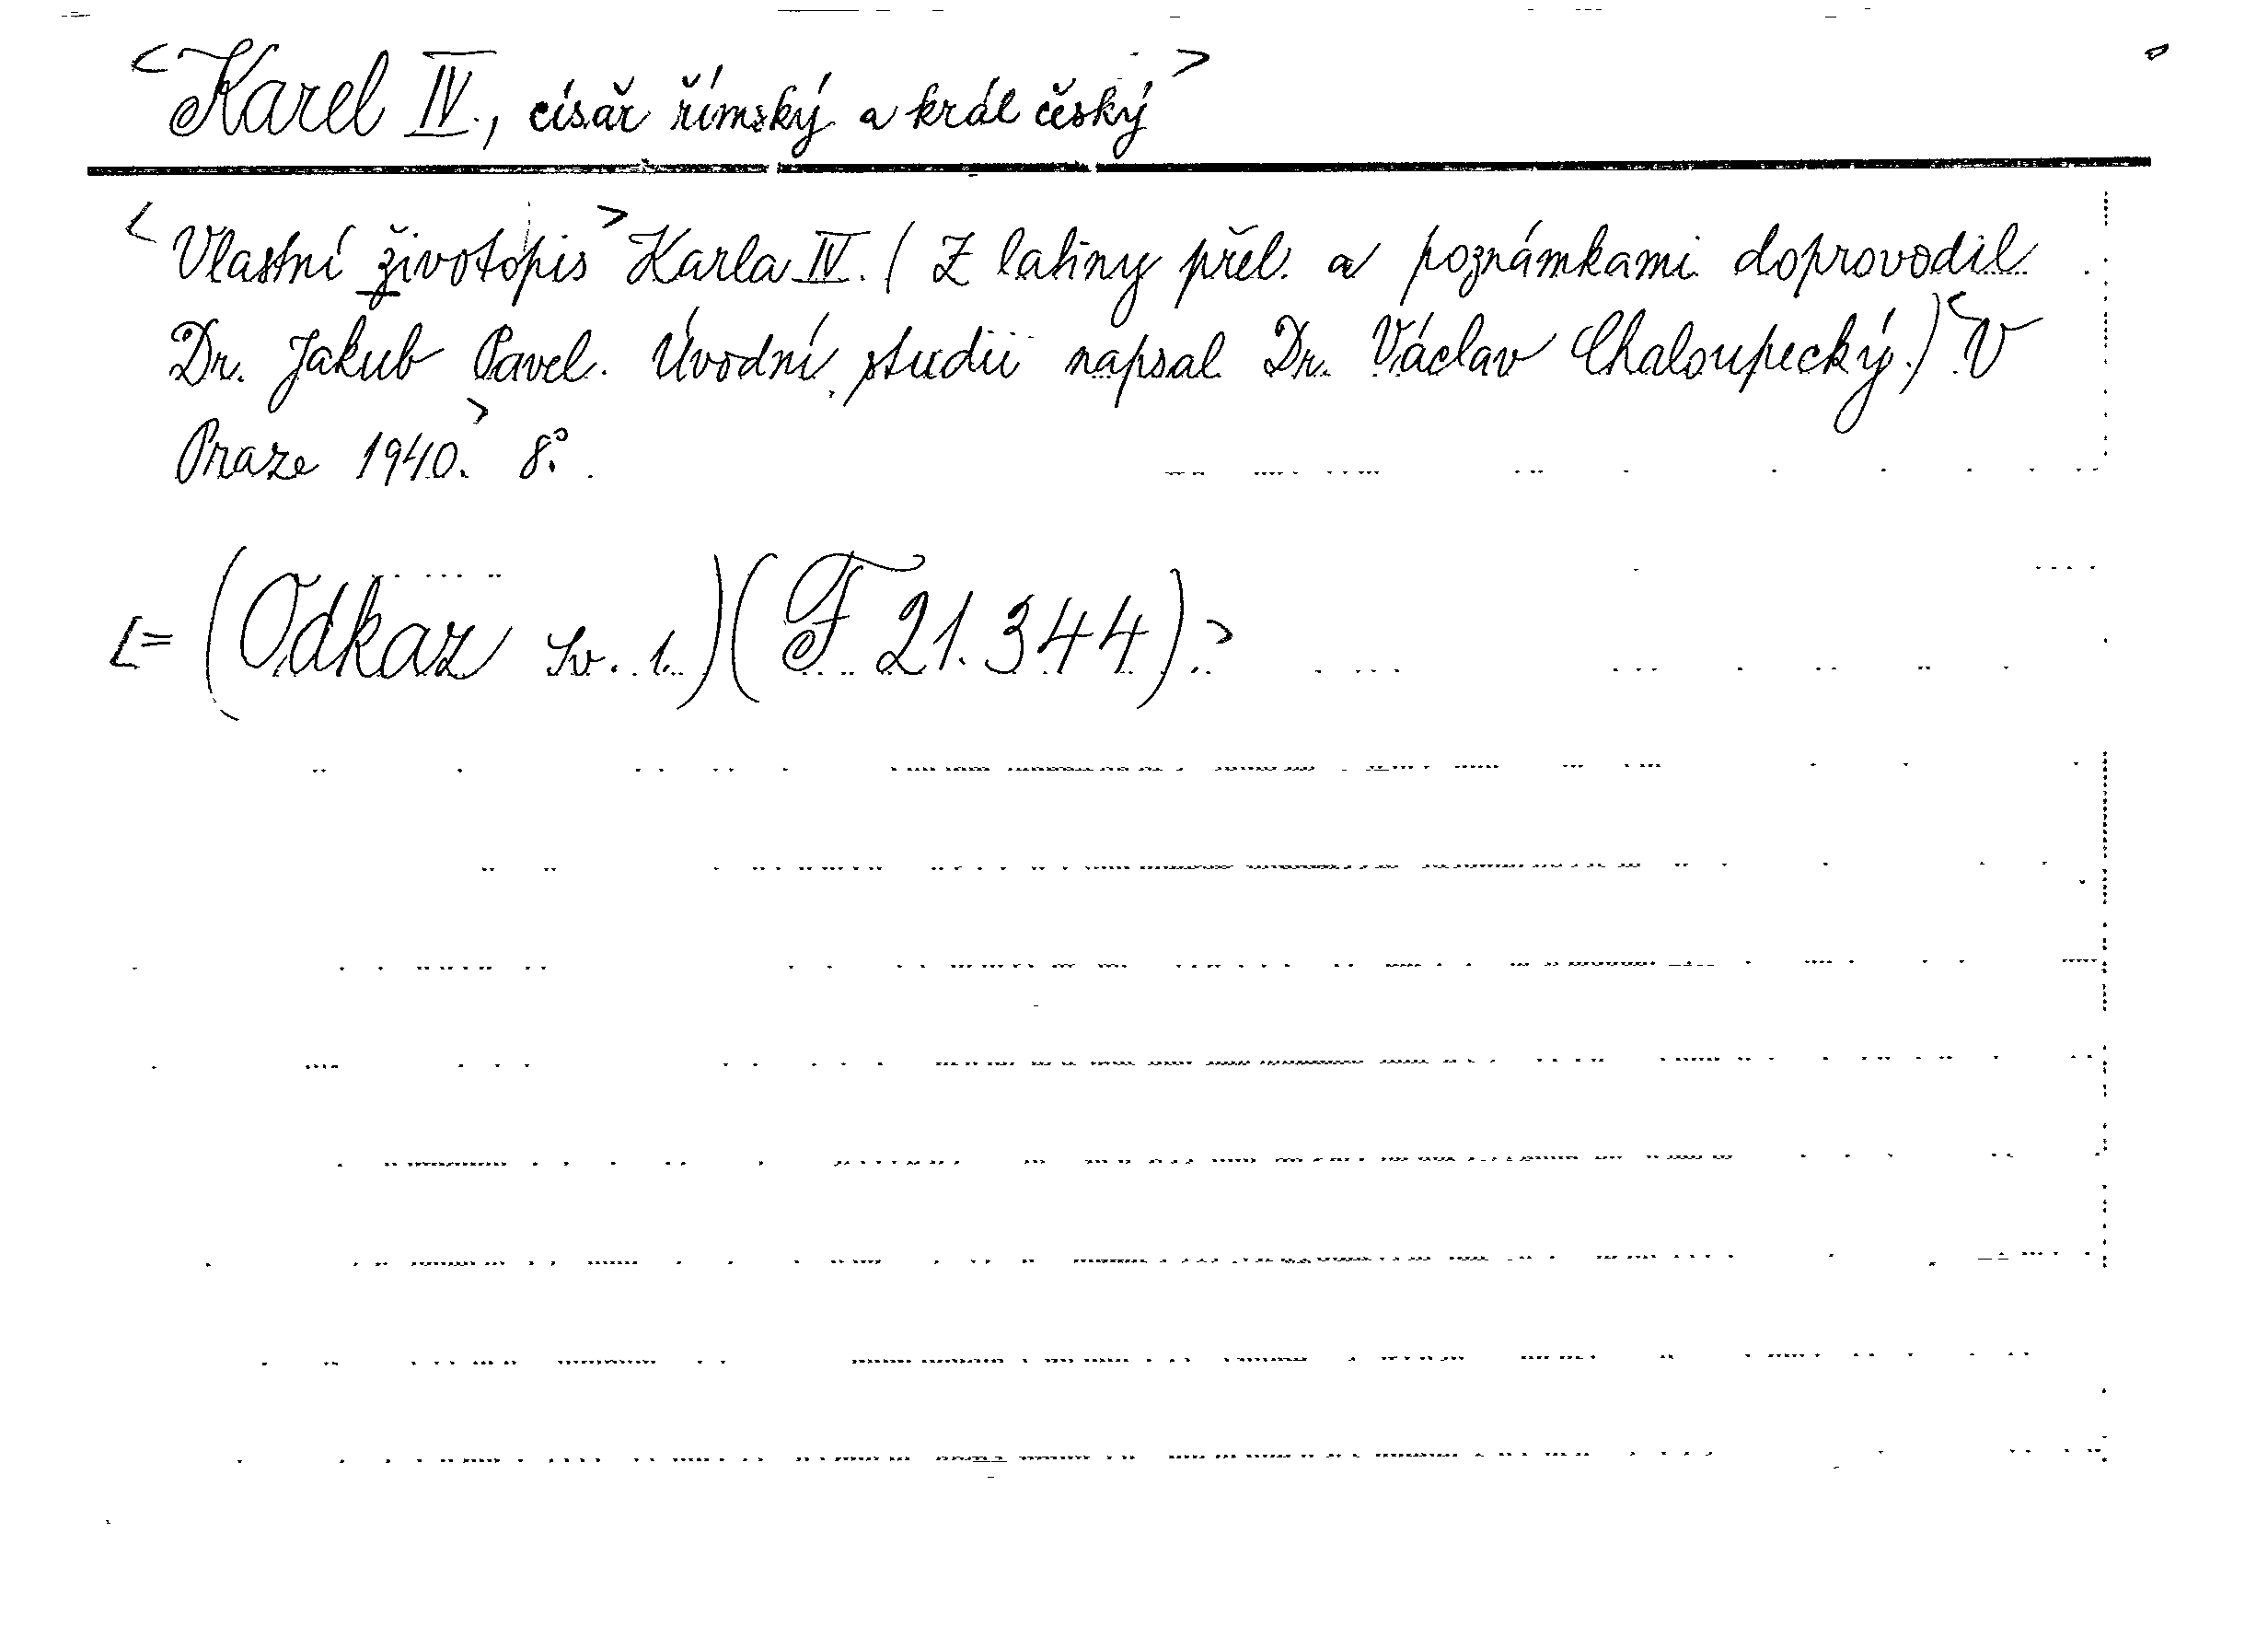 <Karel IV., císař římský a král český>
<Vlastní životopis> Karla IV. (Z latiny přel. a poznámkami doprovodil
Dr. Jakub Pavel. Úvodní studii napsal Dr. Václav Chaloupecký.) <V
Praze 1940.> 8°.
[= (Odkaz sv. 1.) (F 21.344)>